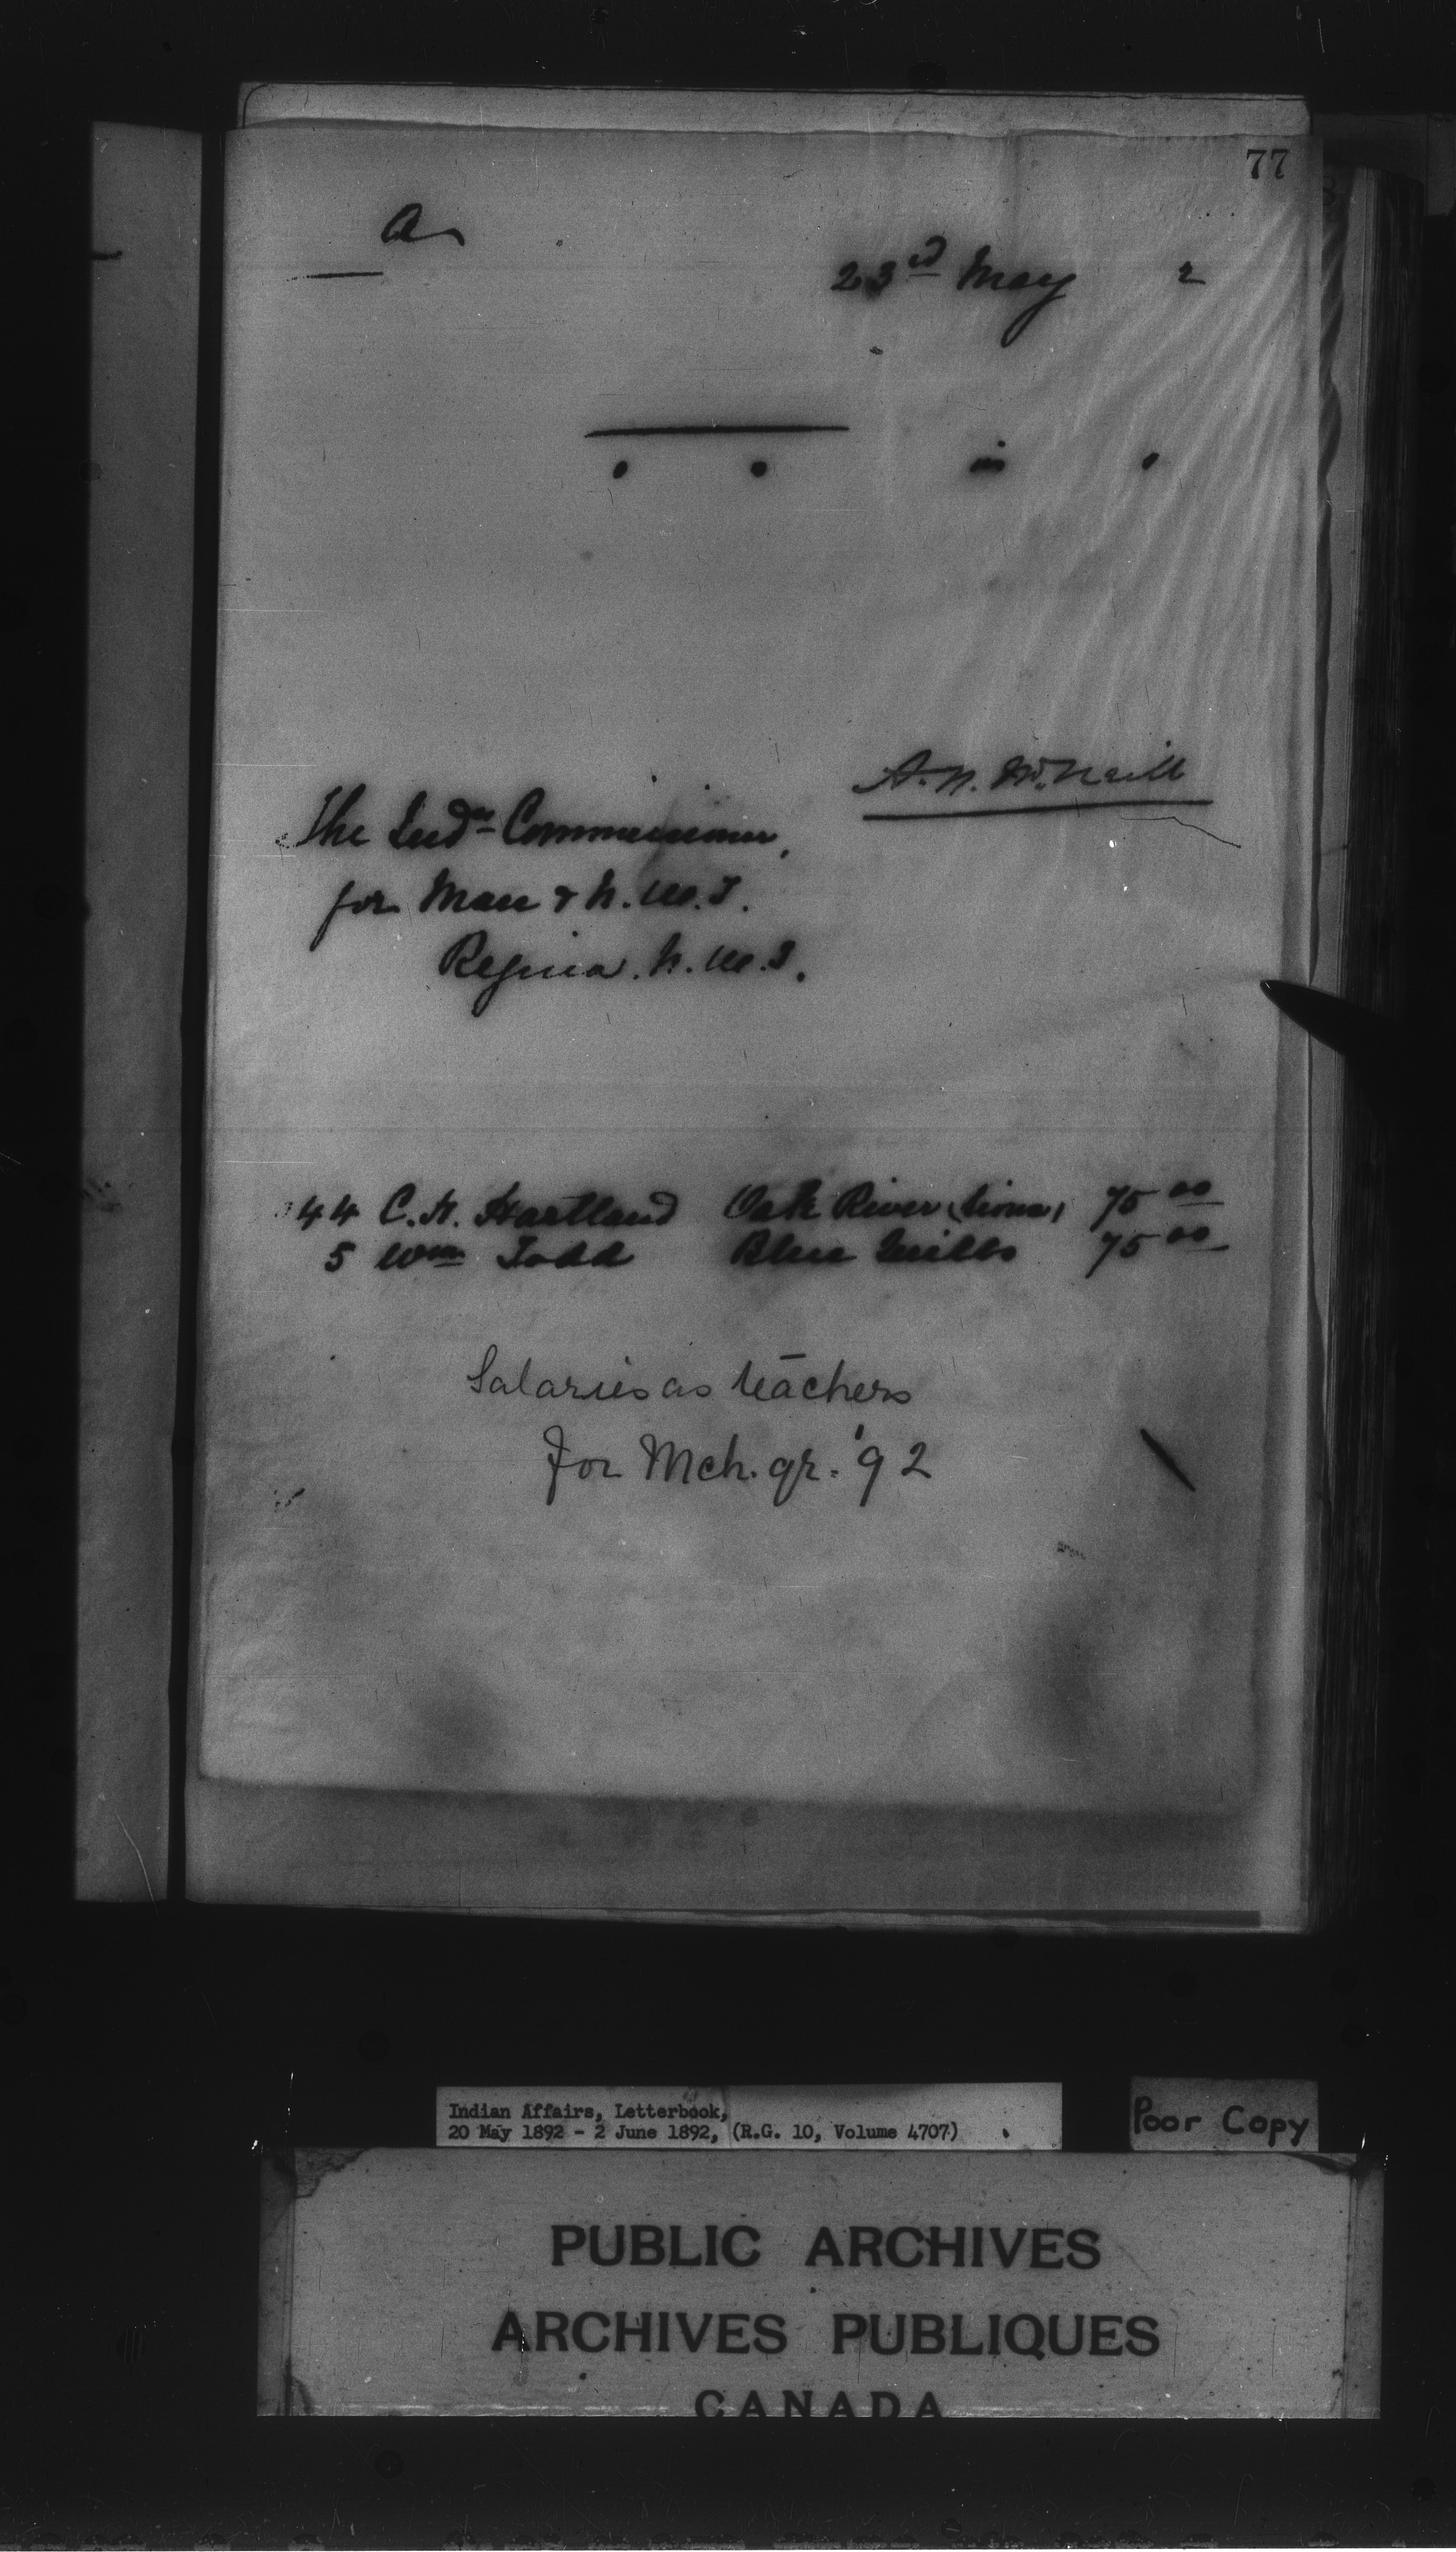 77
a
23rd May 2
in
A. N. McNeill
The Indn Commissioner,
for Man & N. W. T.
Regina. N. W. T.
44 C. H. Hartland Oak River (Sioux) 75 00
5 Wm Todd Blue 75 00
Salaries as teachers
for Mch. qr. '92
Indian Affairs, Letterbook,
20 May 1892 - 2 June 1892, (R.G. 10, Volume 4707)
Poor Copy
PUBLIC ARCHIVES
ARCHIVES PUBLIQUES
CANADA